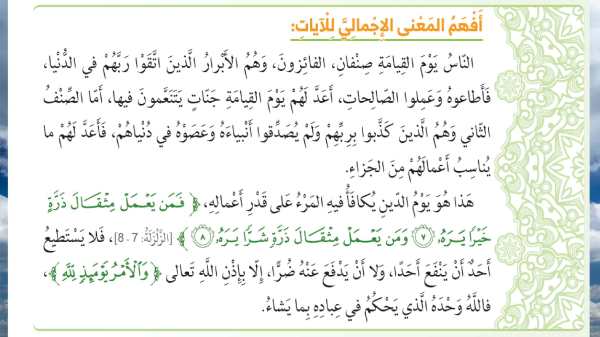 أَفْهَمُ المَعْنى الإِجْماليَّ لِلْآياتِ:
النّاسُ يَوْمَ القِيامَةِ صِنْفانِ، الفائِزونَ، وَهُمُ الأَبْرارُ الَّذينَ اتَّقَوْا رَبَّهُمْ في الدُّنْيا،
فَأَطاعوهُ وَعَمِلوا الصّالِحاتِ، أَعَدَّ لَهُمْ يَوْمَ القِيامَةِ جَنّاتٍ يَتَنَعَّمونَ فيها، أَمّا الصِّنْفُ
الثّاني وَهُمُ الَّذينَ كَذَّبوا بِرِبِّهِمْ وَلَمْ يُصَدِّقوا أَنْبِياءَهُ وَعَصَوْهُ في دُنْياهُمْ، فَأَعَدَّ لَهُمْ ما
يُناسِبُ أَعْمالَهُمْ مِنَ الجَزاءِ.
هَذا هُوَ يَوْمُ الدّينِ يُكافَأُ فيهِ المَرْءُ عَلى قَدْرِ أَعْمالِهِ، ﴿ فَمَن يَعْمَلْ مِثْقَالَ ذَرَّةٍ
خَيْرًا يَرَهُۥ ٧ وَمَن يَعْمَلْ مِثْقَالَ ذَرَّةٍ شَرًّا يَرَهُۥ ٨ ﴾ [الزَّلْزَلَة: 7 ـ 8]، فَلا يَسْتَطيعُ
أَحَدٌ أَنْ يَنْفَعَ أَحَدًا، وَلا أَنْ يَدْفَعَ عَنْهُ ضُرًّا، إِلّا بِإِذْنِ اللَّهِ تَعالى ﴿ وَالْأَمْرُ يَوْمَئِذٍ لِلَّهِ ﴾،
فَاللَّهُ وَحْدَهُ الَّذي يَحْكُمُ في عِبادِهِ بِما يَشاءُ.